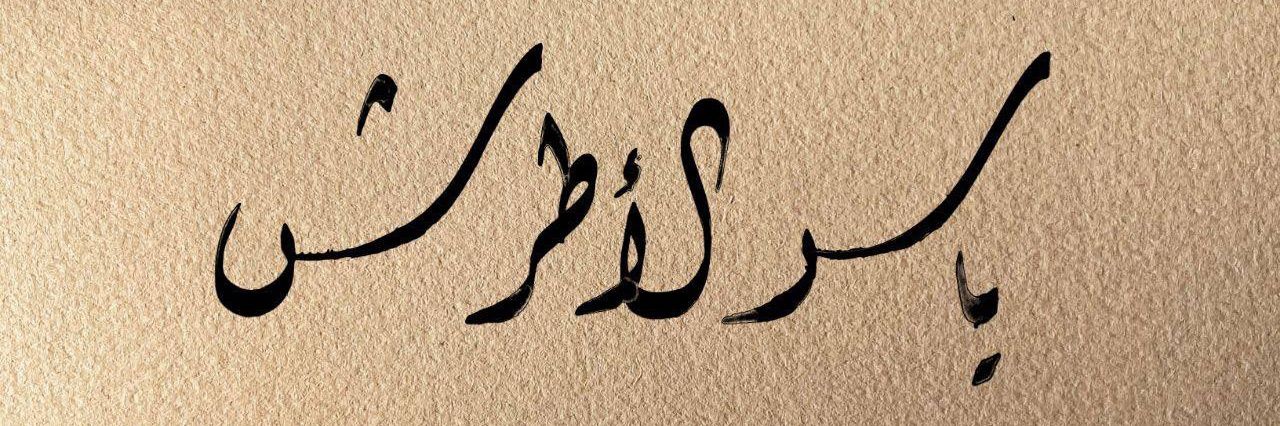 ياسر الأطرش